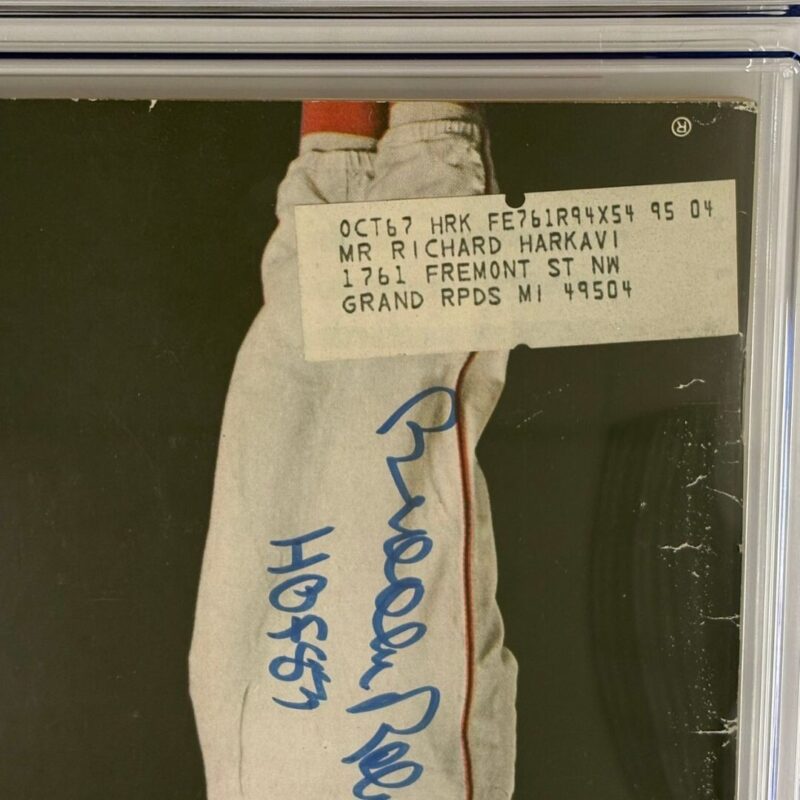 ®
OCT67 HRK FE761R94X54 95 04
MR RICHARD HARKAVI
1761 FREMONT ST NW
GRAND RPDS MI 49504
Brooks Rob
HOF83